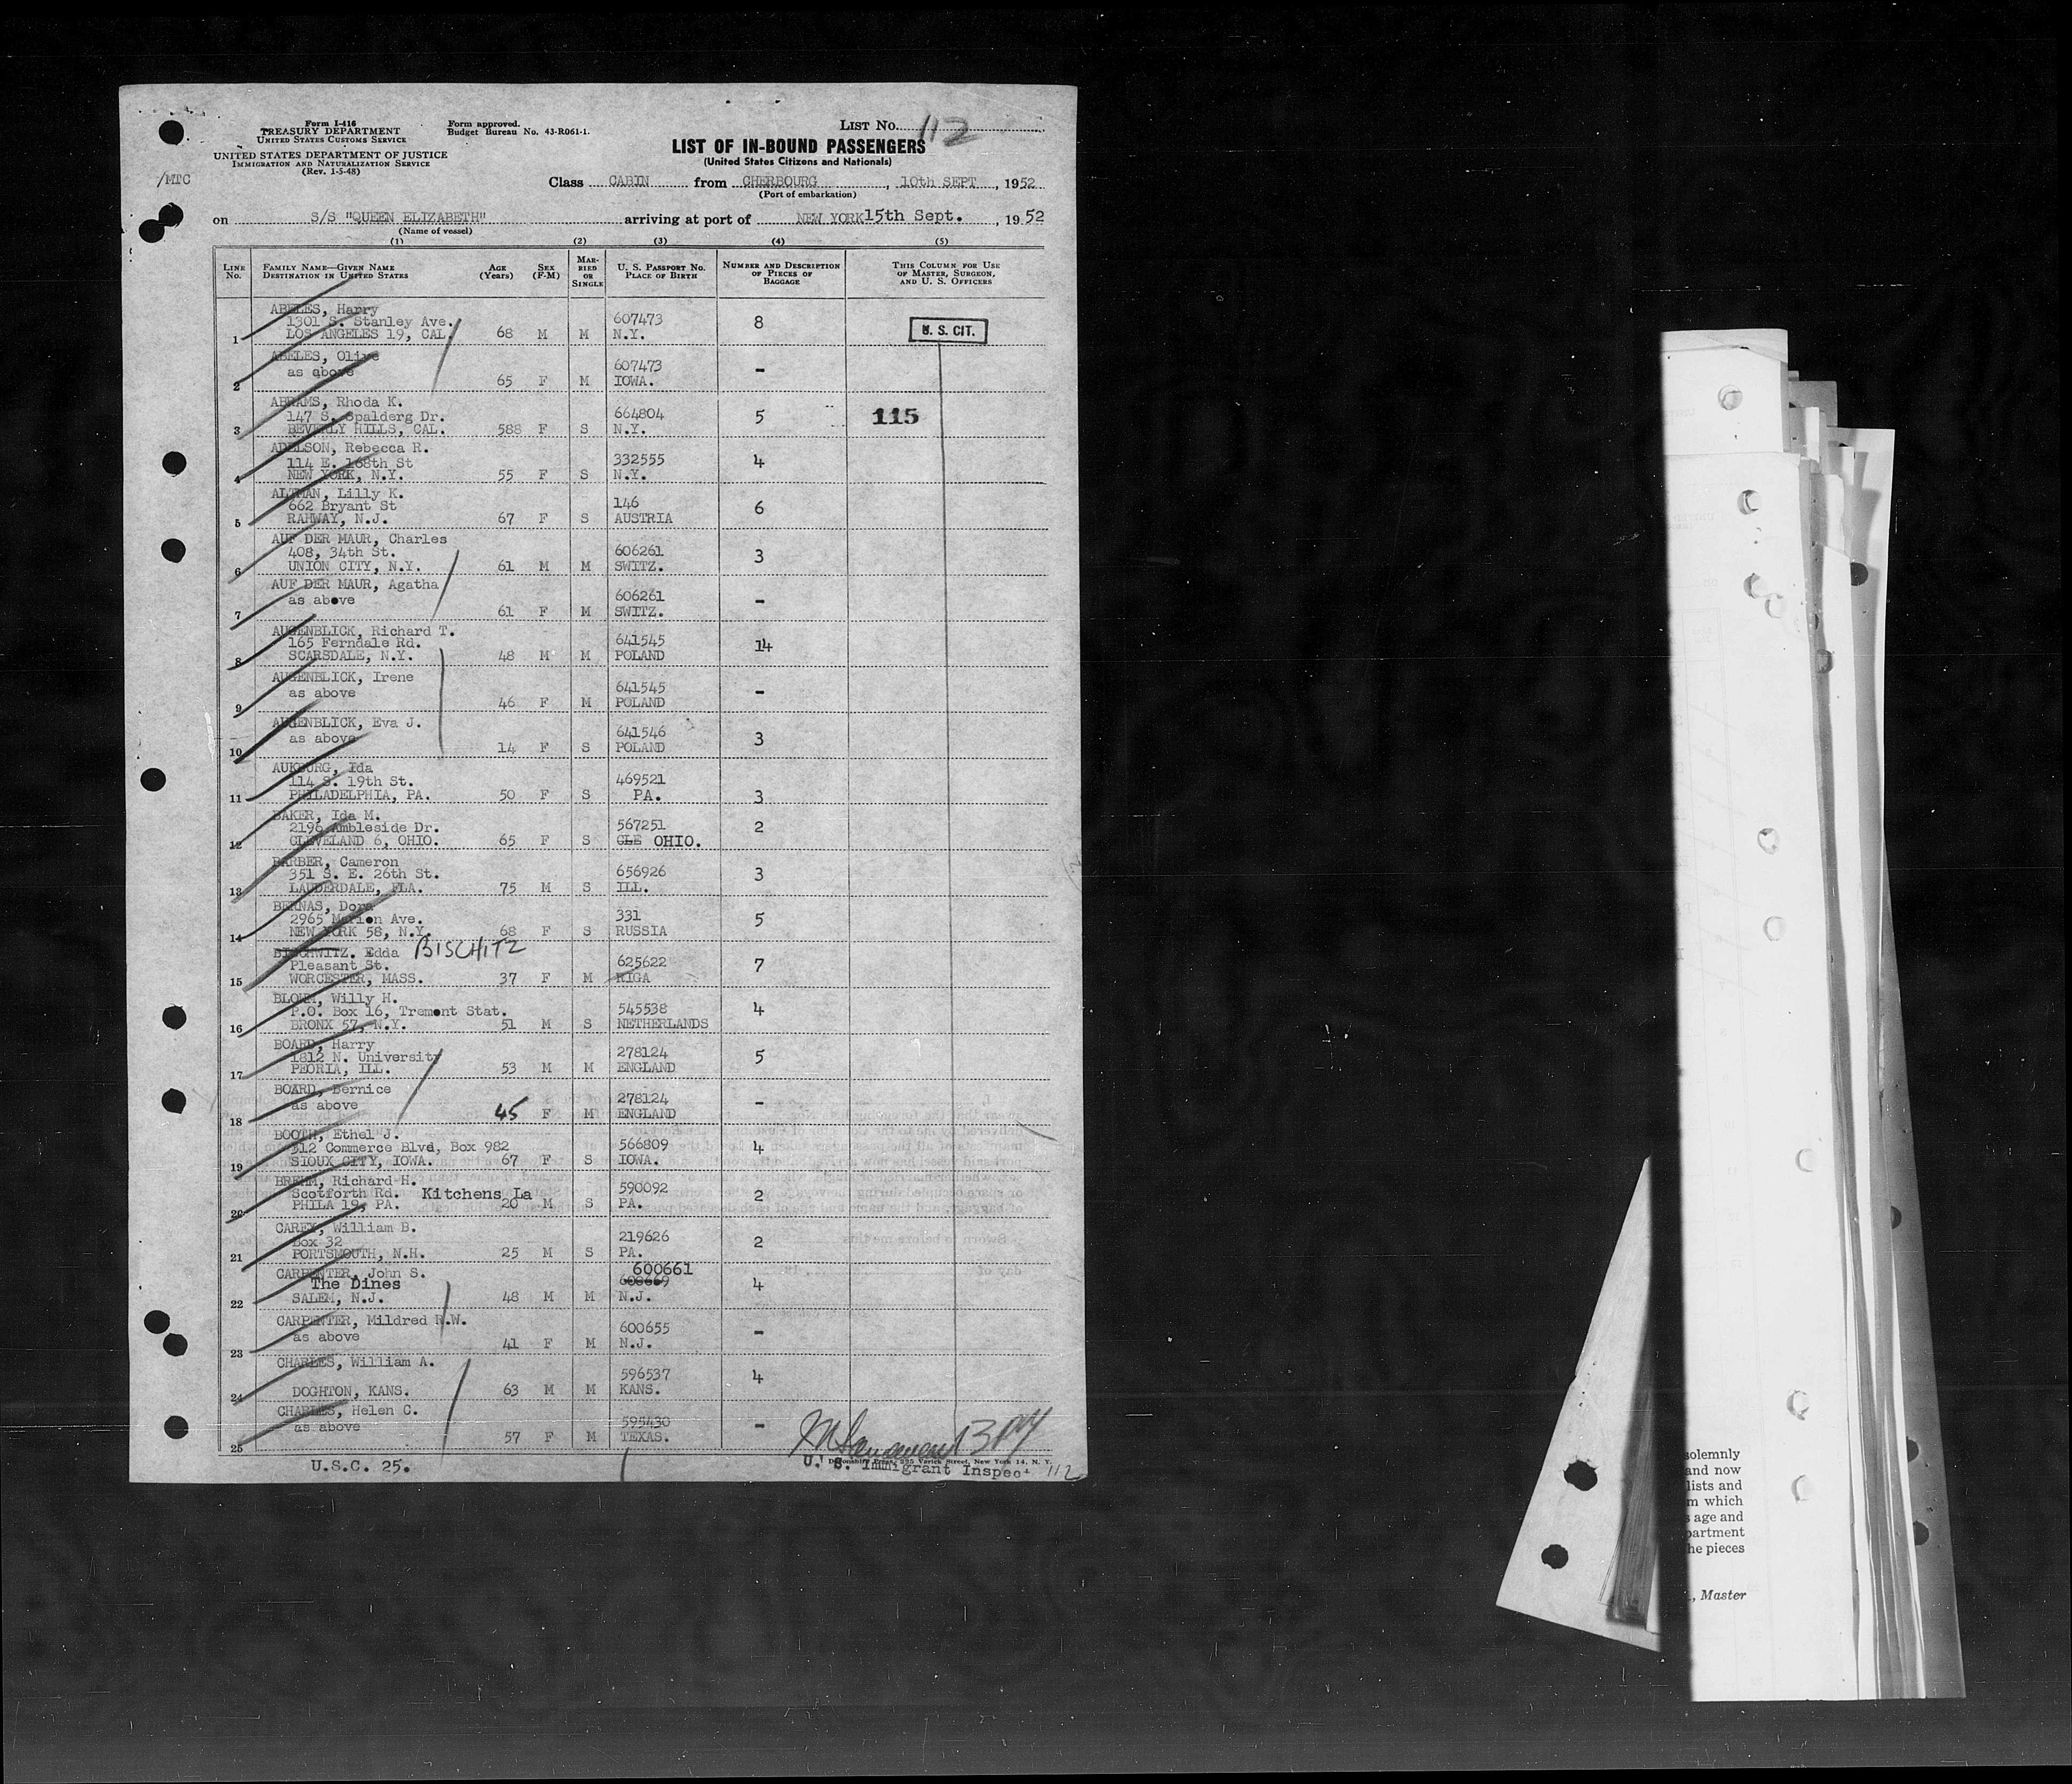 Form I-416
TREASURY DEPARTMENT
UNITED STATES CUSTOMS SERVICE
UNITED STATES DEPARTMENT OF JUSTICE
IMMIGRATION AND NATURALIZATION SERVICE
(Rev. 1-5-48)
Form approved.
Budget Bureau No. 43-R061-1.
LIST No. 112
LIST OF IN-BOUND PASSENGERS
(United States Citizens and Nationals)
/MTC
Class CABIN from CHERBOURG, 10th SEPT, 1952
(Port of embarkation)
on S/S "QUEEN ELIZABETH" arriving at port of NEW YORK 15th Sept., 1952
(Name of vessel)
(1) (2) (3) (4) (5)
LINE NO. FAMILY NAME—GIVEN NAME DESTINATION IN UNITED STATES AGE (YEARS) SEX (F-M) MARRIED OR SINGLE U. S. PASSPORT NO. PLACE OF BIRTH NUMBER AND DESCRIPTION OF PIECES OF BAGGAGE THIS COLUMN FOR USE OF MASTER, SURGEON, AND U. S. OFFICERS
ABELES, Harry
1301 S. Stanley Ave. 607473 8 U. S. CIT.
1 LOS ANGELES 19, CAL. 68 M M N.Y.
ABELES, Olive
as above 607473 -
2 65 F M IOWA.
ABRAMS, Rhoda K.
147 S. Spalderg Dr. 664804 5 115
3 BEVERLY HILLS, CAL. 588 F S N.Y.
ADELSON, Rebecca R.
114 E. 168th St 332555 4
4 NEW YORK, N.Y. 55 F S N.Y.
ALTMAN, Lilly K.
662 Bryant St 146 6
5 RAHWAY, N.J. 67 F S AUSTRIA
AUF DER MAUR, Charles
408, 34th St. 606261 3
6 UNION CITY, N.Y. 61 M M SWITZ.
AUF DER MAUR, Agatha
as above 606261 -
7 61 F M SWITZ.
AUGENBLICK, Richard T.
165 Ferndale Rd. 641545 14
8 SCARSDALE, N.Y. 48 M M POLAND
AUGENBLICK, Irene
as above 641545 -
9 46 F M POLAND
AUGENBLICK, Eva J.
as above 641546 3
10 14 F S POLAND
AUKBURG, Ida
114 S. 19th St. 469521
11 PHILADELPHIA, PA. 50 F S PA. 3
BAKER, Ida M.
2196 Ambleside Dr. 567251 2
12 CLEVELAND 6, OHIO. 65 F S CLE OHIO.
BARBER, Cameron
351 S. E. 26th St. 656926 3
13 LAUDERDALE, FLA. 75 M S ILL.
BERNAS, Dora
2965 Marion Ave. 331 5
14 NEW YORK 58, N.Y. 68 F S RUSSIA
BISCHWITZ. Edda BISCHITZ
Pleasant St. 625622 7
15 WORCESTER, MASS. 37 F M RIGA
BLOHM, Willy H.
P.O. Box 16, Tremont Stat. 545538 4
16 BRONX 57, N.Y. 51 M S NETHERLANDS
BOARD, Harry
1812 N. University 278124 5
17 PEORIA, ILL. 53 M M ENGLAND
BOARD, Bernice
as above 278124 -
18 45 F M ENGLAND
BOOTH, Ethel J.
312 Commerce Blvd, Box 982 566809 4
19 SIOUX CITY, IOWA. 67 F S IOWA.
BREHM, Richard H.
Scotforth Rd. Kitchens La 590092 2
20 PHILA 19, PA. 20 M S PA.
CAREY, William B.
Box 32 219626 2
21 PORTSMOUTH, N.H. 25 M S PA.
CARPENTER, John S. 600661
The Dines 600669 4
22 SALEM, N.J. 48 M M N.J.
CARPENTER, Mildred R.W.
as above 600655 -
23 41 F M N.J.
CHARLES, William A.
596537 4
24 DOGHTON, KANS. 63 M M KANS.
CHARLES, Helen C.
as above 595430 -
25 57 F M TEXAS.
U.S.C. 25.
Devonshire Press, 225 Varick Street, New York 14, N. Y.
U. S. Immigrant Inspect
112
solemnly
and now
lists and
m which
s age and
partment
he pieces
, Master